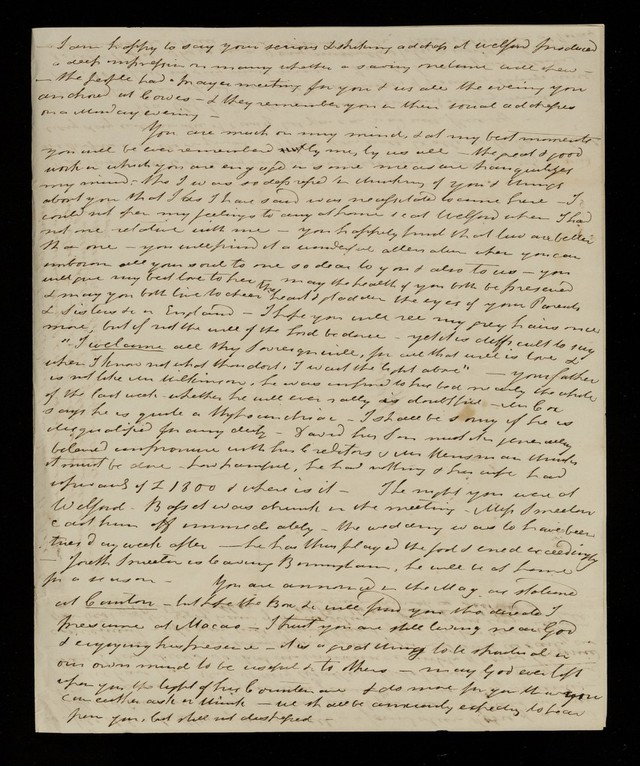 I am happy to say your serious & striking address at Welford produced
a deep impression on many whether a saving one time will shew -
- the people had a prayer meeting for you & us all the evening you
anchored at Cowes - & they remember you in their social addresses
on a Monday evening -
You are much on my mind, & at my best moments
you will be ever remembered by me, by us all - the great & good
work in which you are engaged in some measure tranquilizes
my mind - tho I was so depressed in thinking of you & things
about you that I
could not open my feelings to any at home or at Welford when I had
not one relative with me - you happily find that two are better
than one - you will find it a wonderful alleviation when you can
unbosom all your soul to one so dear to you & also to us - you
will give my best love to her may the health of you both be preserved
& may you both live to cheer the heart & gladden the eyes of your Parents
& Sisters &c in England - I hope you will see my grey hairs once
more, but if not the will of the Lord be done - yet it is difficult to say
"I welcome all thy Sovereign will, for all that will is love &
when I know not what thou dost, I wait the light above" - your father
is not like Mr Wilkinson, he was confined to his bed nearly the whole
of the last week - whether he will ever rally is doubtful - Mr Cox
says he is quite a Hypocondriac - I shall be sorry if he is
disqualified for any duty - David his Son must it is generally
believed compromise with his Creditors & Mr thinks
it must be done - how shameful, he had nothing & his wife had
upwards of £1800 & where is it - The night you were at
Welford - Basset was drunk in the meeting - Miss Smeeton
cast him off immediately - the wedding was to have been
tuesday week after - he has thus played the fool & erred exceedingly
- Joseph Smeeton is leaving Birmingham, he will be at home
for a season - You are announced in the Mag. as stationed
at Canton - but the Box &c will find you tho directed I
presume at Macao - I trust you are still living near God
& enjoying his presence - it is a great thing to be spiritual in
our own mind to be useful to others - may God ever lift
upon you the light of his Countenance & do more for you than you
can either ask or think - we shall be anxiously expecting to hear
from you, but shall not be distressed -